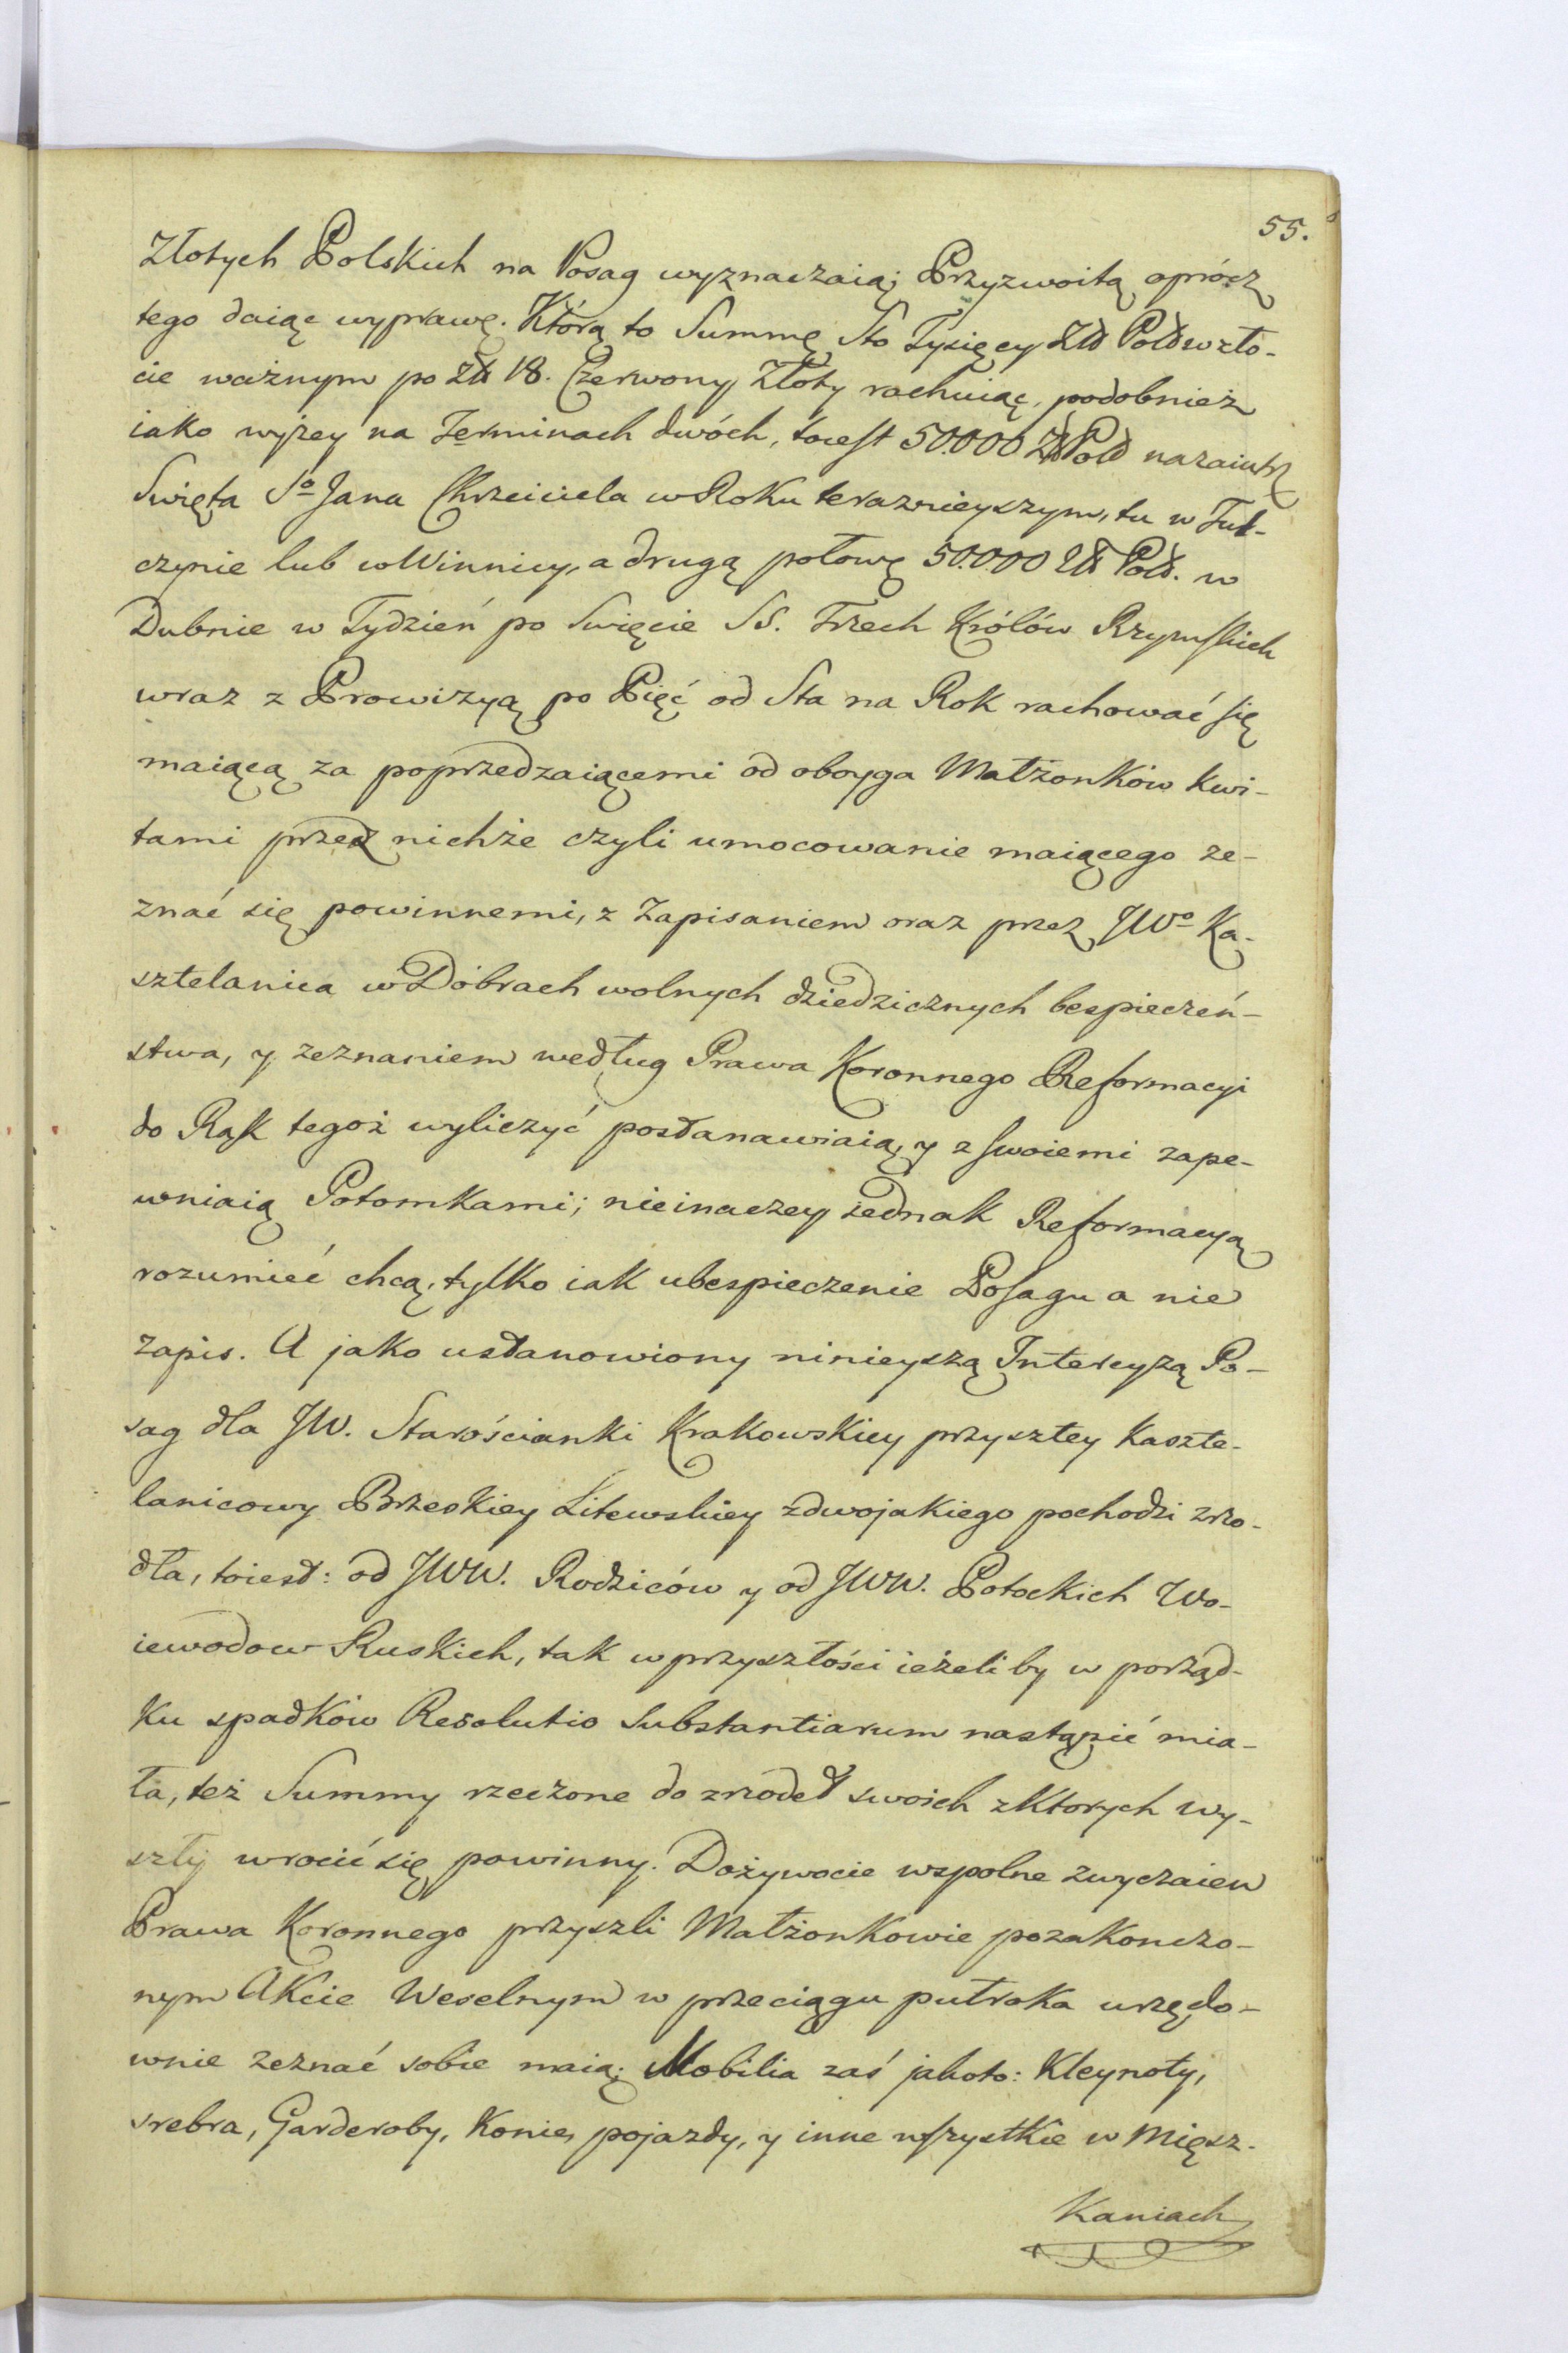 55.
Złotych Polskich na Posag wyznaczaią; Przyzwoitą oprócz
tego daiąc wyprawę. Którą to Summę Sto Tysięcy Złł Polł w zło-
cie ważnym po Złł 18. Czerwony Złoty rachuiąc, podobnież
iako wyżey na Terminach dwóch, toiest 50.000 Złł Polł nazaiutrz
Swięta So Jana Chrzciciela w Roku teraznieyszym, tu w Tul-
czynie lub w Winnicy, a drugą połowę 50.000 Złł Polł. w
Dubnie w Tydzień po Swięcie SS. Trzech Królów Rzymskich
wraz z Prowizyą po Pięć od Sta na Rok rachować się
maiącą za poprzedzaiącemi od oboyga Małżonków kwi-
tami przez nichże czyli umocowanie maiącego ze-
znać się powinnemi, z Zapisaniem oraz przez JWo Ka-
sztelanica w Dobrach wolnych dziedzicznych bespieczeń-
stwa, y zeznaniem według Prawa Koronnego Reformacyi
do Rąk tegoż wyliczyć postanawiaią, y z swoiemi zape-
wniaią Potomkami; nieinaczey jednak Reformacyą
rozumieć chcą, tylko iak ubespieczenie Posagu a nie
zapis. A jako ustanowiony ninieyszą Intercyzą Po-
sag dla JW. Starościanki Krakowskiey przyszłey Kaszte-
lanicowy Brzeskiey Litewskiey zdwojakiego pochodzi zrzo-
dła, toiest: od JWW. Rodziców y od JWW. Potockich Wo-
iewodow Ruskich, tak w przyszłości ieżeliby w porząd-
ku spadków Resolutio Substantiarum nastąpić mia-
ła, też Summy rzeczone do zrzodeł swoich zktorych wy-
szły wrocić się powinny. Dożywocie wspolne zwyczaiem
Prawa Koronnego przyszli Małżonkowie pozakonczo-
nym Akcie Weselnym w przeciągu pułroka urzędo-
wnie zeznać sobie maią; Mobilia zaś jakoto: Kleynoty,
srebra, Garderoby, Konie, pojazdy, y inne wszystkie w Miesz-
Kaniach